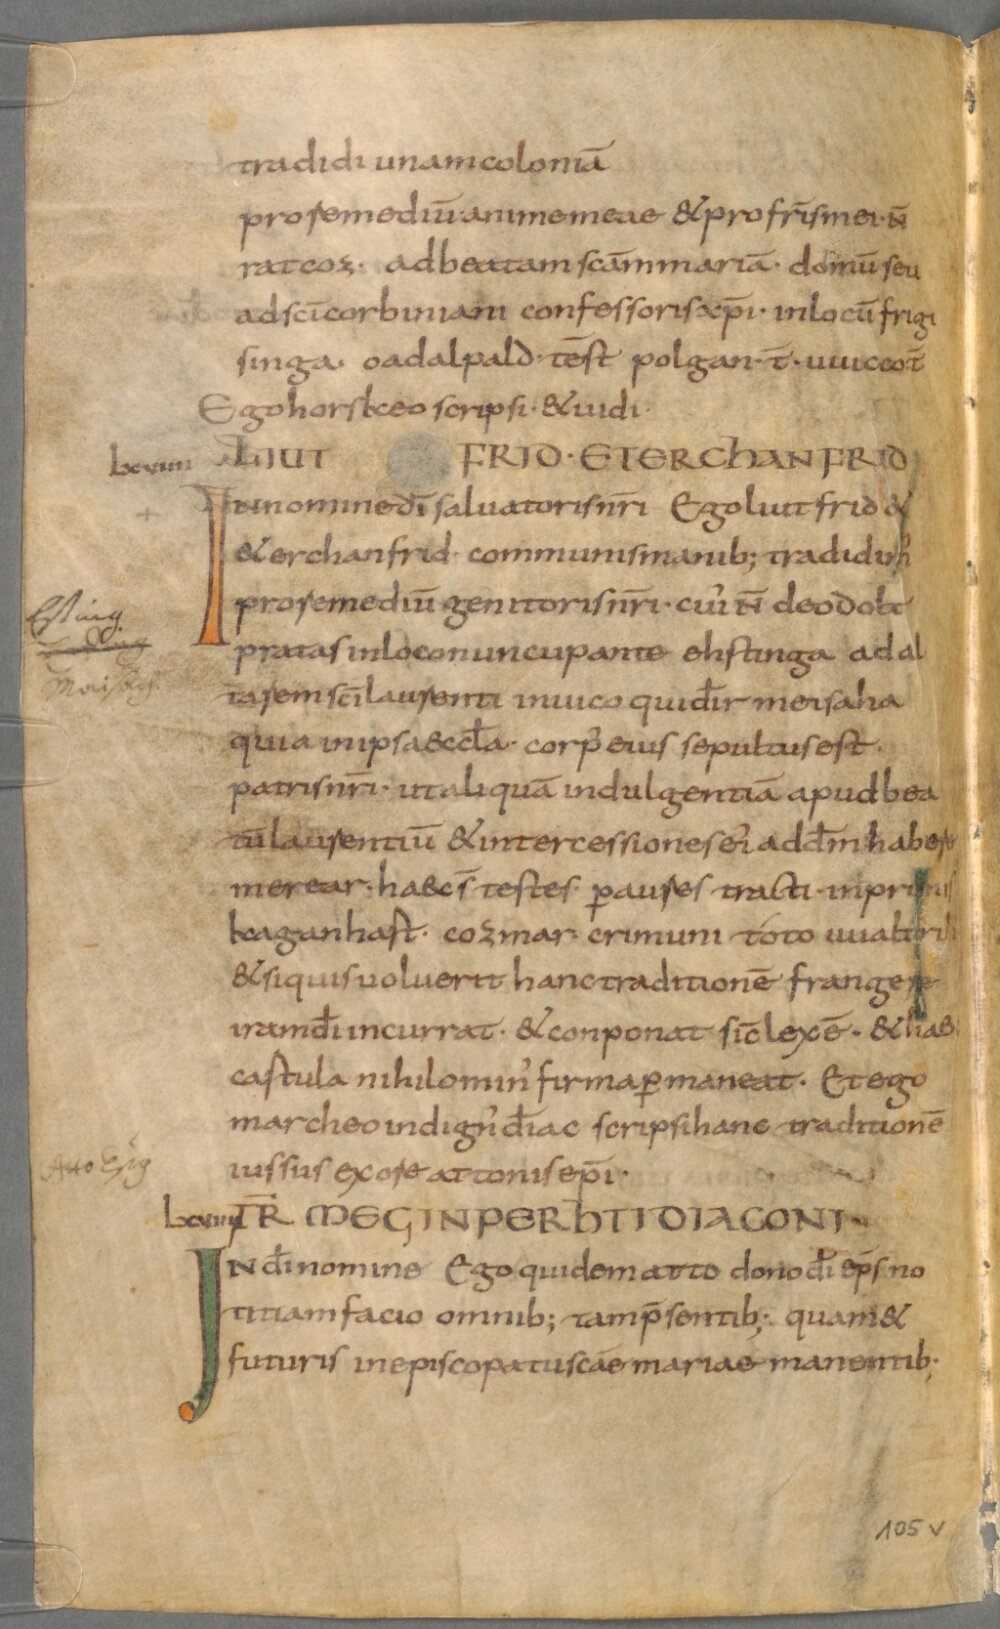 tradidi unam coloniā
pro remediū animemeae & pro fr̄is mei · n̄
ratcoz · ad beatam scām mariā · domū seu
ad scī corbiniani confessoris xp̄i · in locū frigi
singa · oadalpald · tēst polgan · t̄ · uuiccot̄
Ego horskeo scripsi · & uidi ·
lxviiii LIUT FRID · ET ERCHANFRID
In nomine dī saluatoris nr̄i Ego liutfrid &
& erchanfrid · communis manib; tradidim̄
pro remediū genitoris nr̄i · cui' n̄ deodolt
Esting
pratas in loco nuncupante ehstinga ad al
Maisach
tarem scī laurenti in uico qui dr̄ meisaha
quia in ipsa ęccl̄a · corp' eius sepultus est ·
patris nr̄i · ut aliquā indulgentiā apud bea
tū laurentiū & intercessiones ei' ad dm̄ habere
merear · haec s̄ testes · p aures tracti · in primis
kaganhast · cozmar · crimuni toto uualtrih
& si quis uoluerit hanc traditionē frangere
iram dī incurrat · & conponat sic̄ lex ē · & haec
castula nihilomin' firma pmaneat · Et ego
marcheo indign' diāc scripsi hanc traditionē
Atto Epis
iussus ex ore attonis ep̄i ·
lxviiii TR̄ MEGINPERHTI DIACONI ·
In dī nomine Ego quidem atto dono dī ep̄s no
titiam facio omnib; tam p̄sentib; quam &
futuris in episcopatu scāe mariae manentib;
105 v